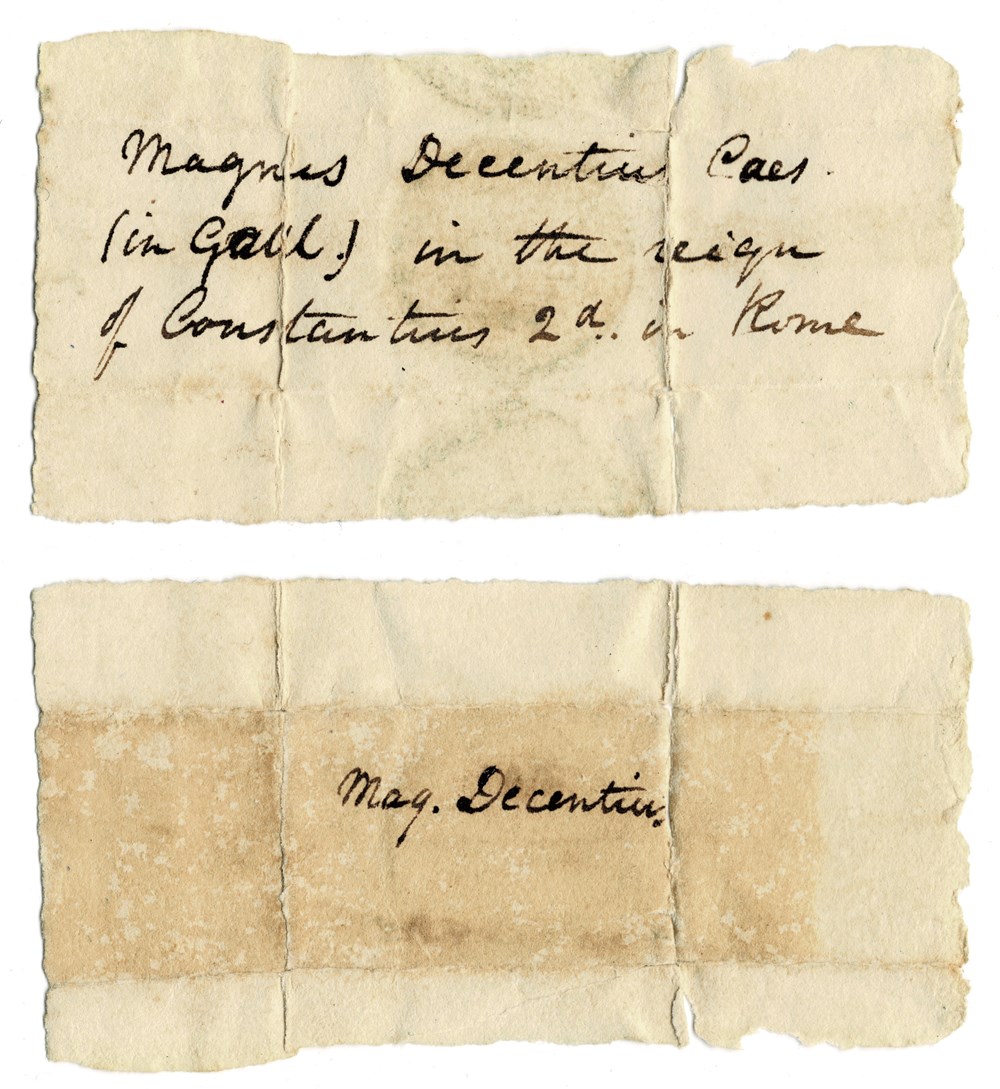 Magnus Decentius Caes.
(in Gall.) in the reign
of Constantius 2d. in Rome
Mag. Decentius